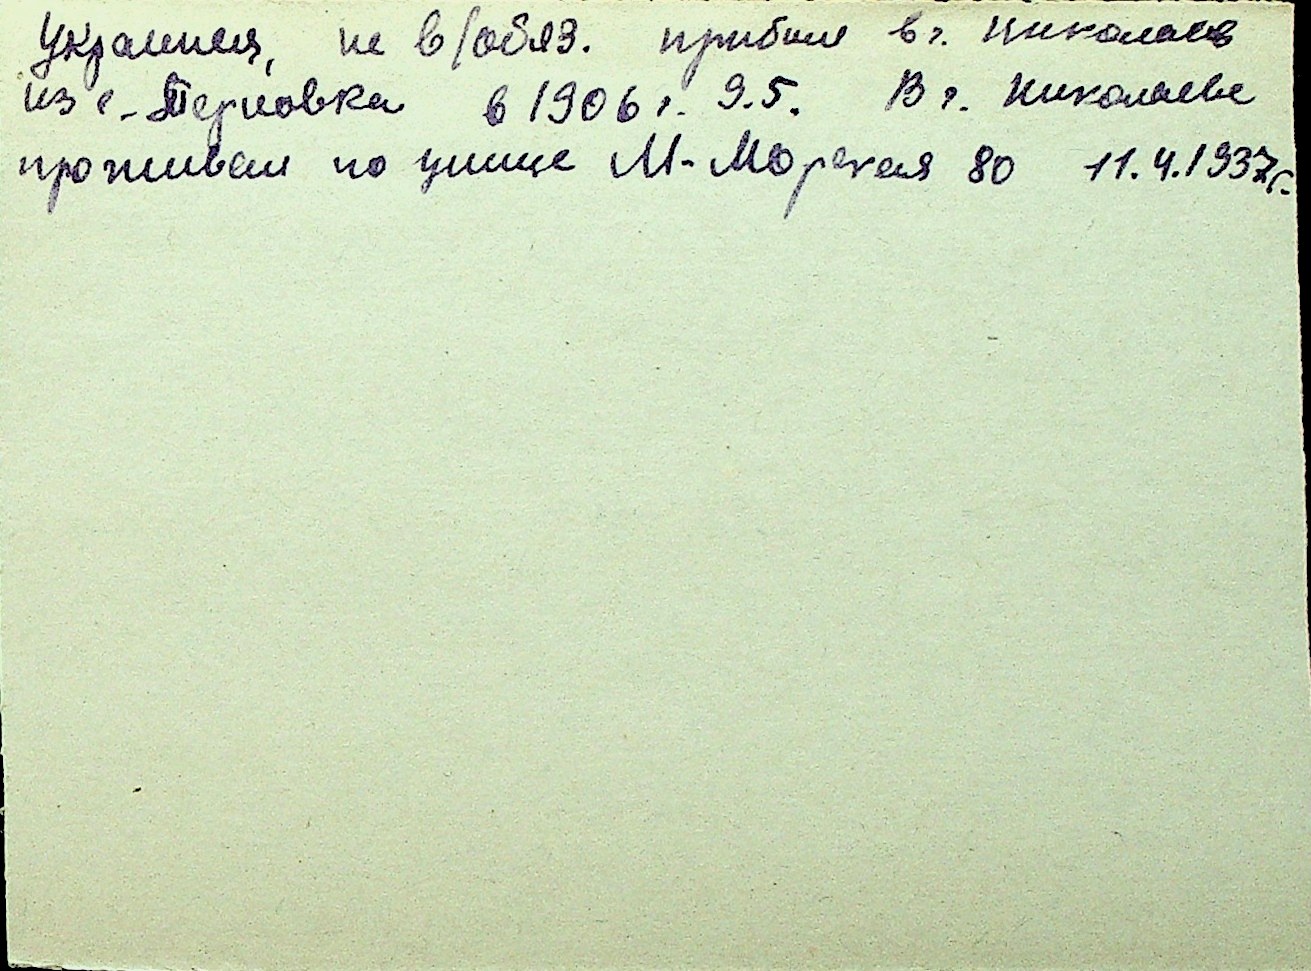 Украинец, не в/обяз. прибыл в г. Николаев
из с. Терновка в 1906 г. 9.5. В г. Николаеве
проживал по улице М-Морская 80 11.4.1937г.